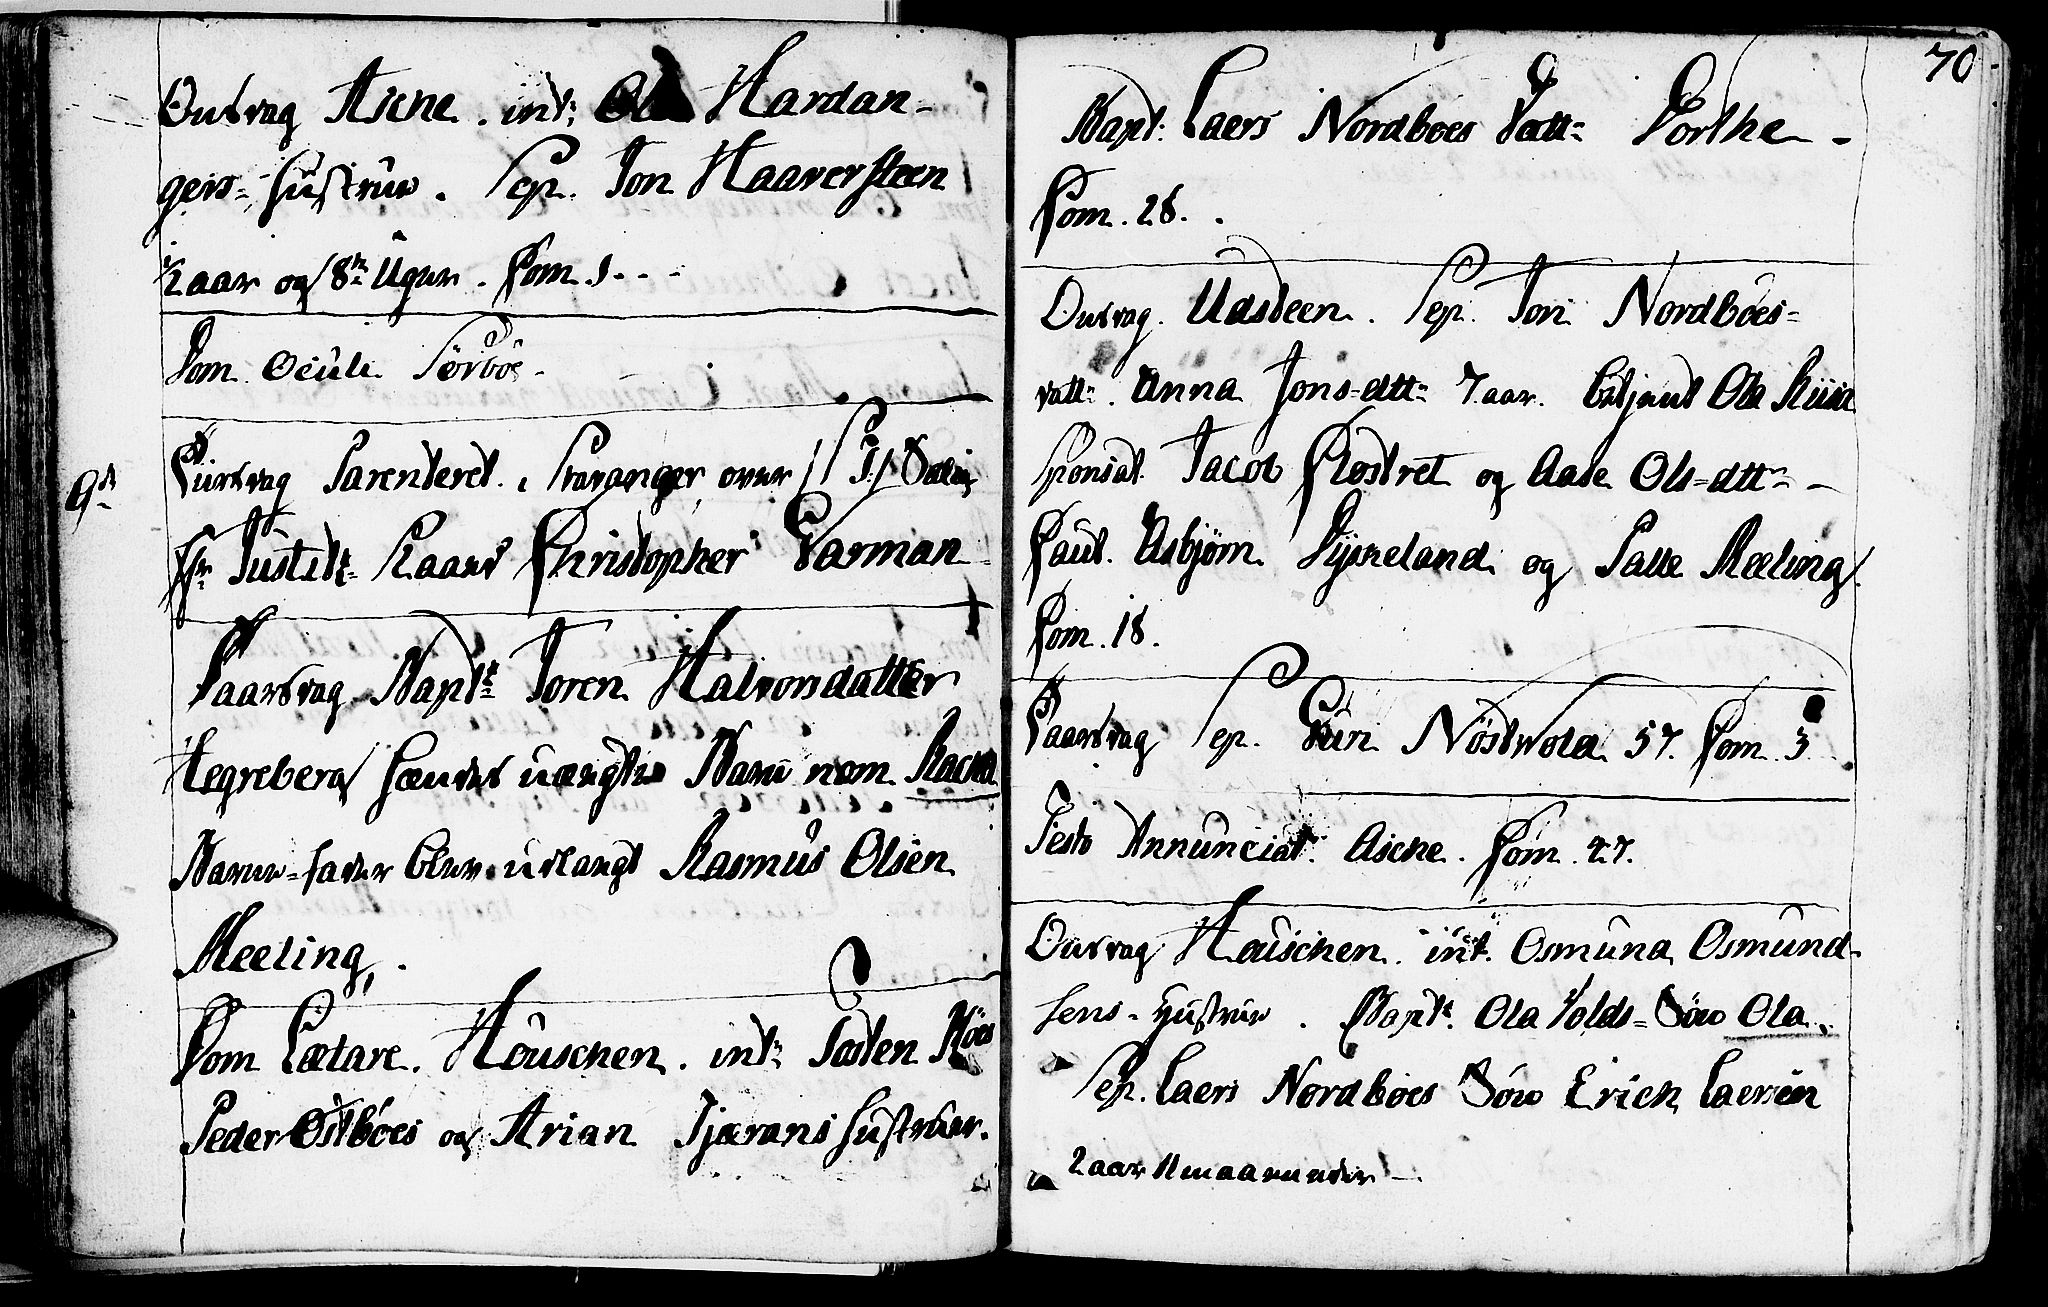 Onsdag Aske. int: Ola Hardan-
gers- Hustrue. Sep. Jon Haaversteen
1/2 aar og 18 Uger. Com. 1.
Dom. Oculi Sörböe.
9d Tirsdag Parenteret i Stavanger over S: T: Salig
Hr Justits- Raad Christopher Garman
Taarsdag Bapt: Joren Halvorsdatter
Hegreberg hendes uægte Barn nom. Rach
Barne-fader blev udlangt Rasmus Olsen
Meeling.
Dom Lætare. Houschen. int: Sosten Röes
Peder Östböes og Arian Tjærans Hustruer.
70
Bapt: Laers Nordböes Datt: Dorthe -
Com. 28.
Onsdag. Udsteen. Sep. Jon Nordböes-
datt: Anna Jons-dtt: 7 aar. betjent Ola
Sponsat. Jacob Clostret og Aase Ols-dtt: -
Caut. Asbjørn Tyskeland og Salle Meeling.
Com. 18.
Taarsdag Sep. Guri Nöstvold 57. Com. 3
Festo Annunciat: Aske. Com. 27.
Onsdag Houschen. int. Osmund Osmund-
sens- Hustrue. Bapt: Ola Volds- Søn Ola.
Sep. Laers Nordböes Søn Erich Laersen
2 aar 11 maaneder -